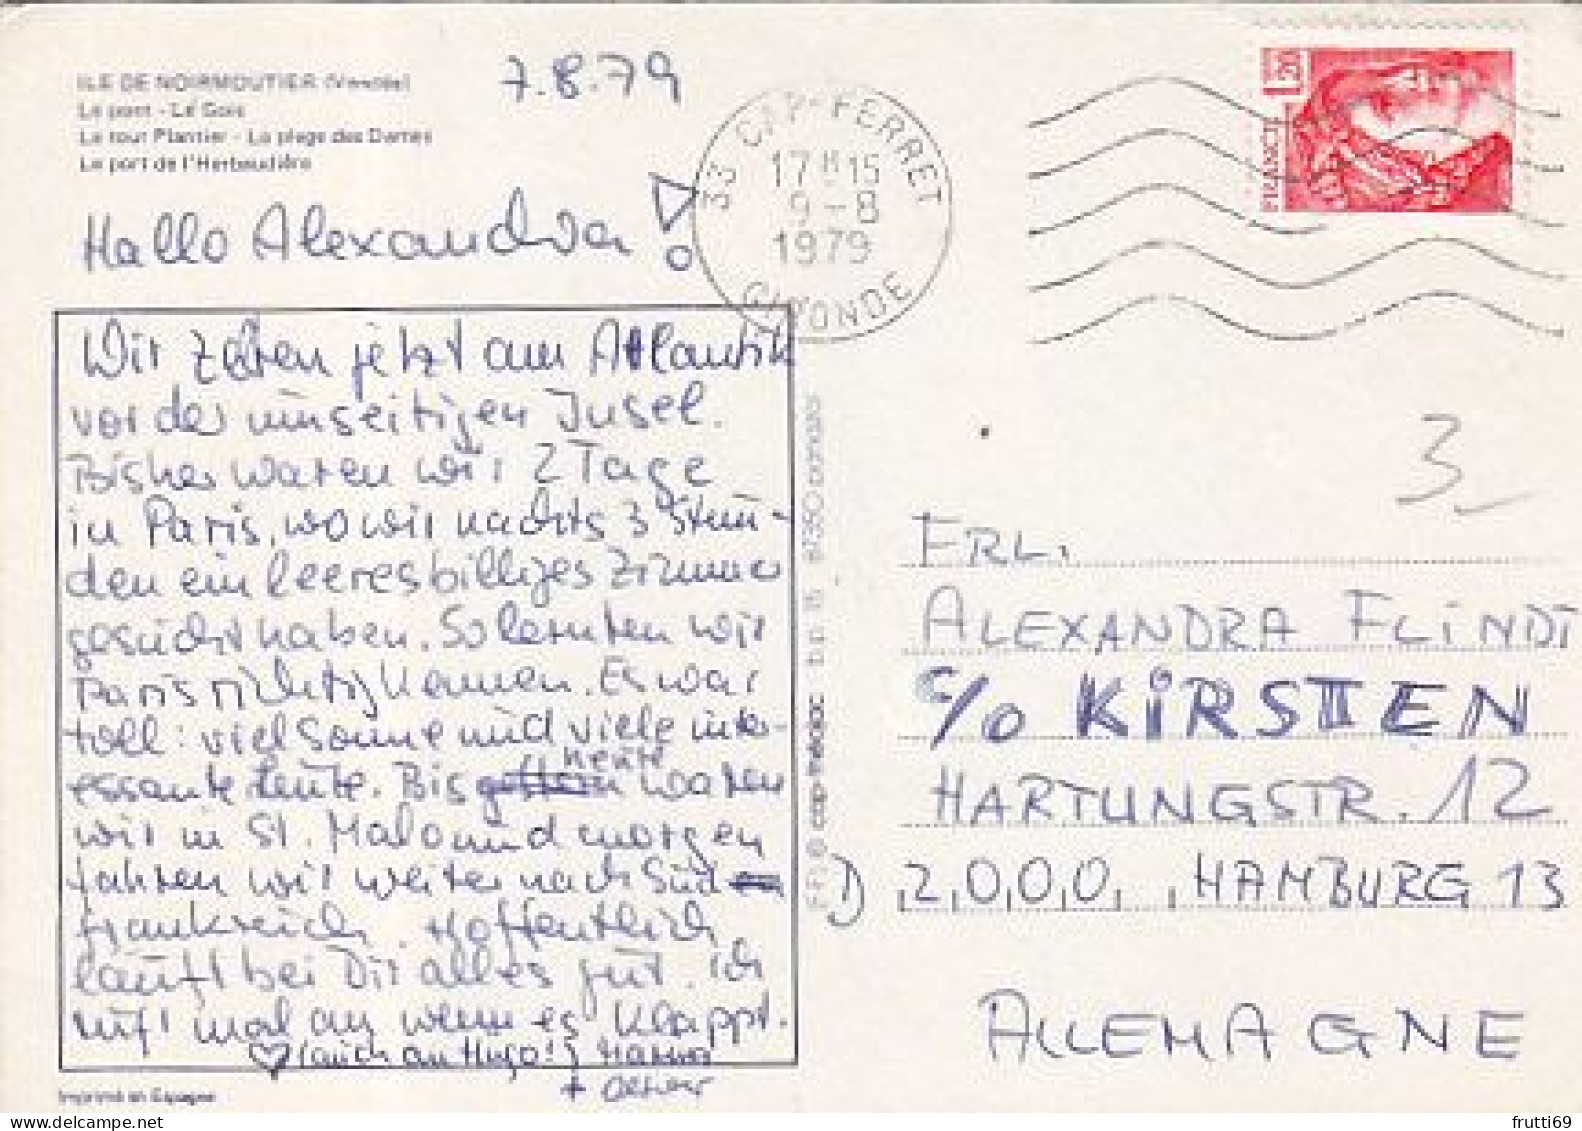 ILE DE NOIRMOUTIER (Vendée)
Le pont - Le Gois
La tour Plantier - La plage des Dames
Le port de l'Herbaudière
7.8.79
33 CAP-FERRET
17 H 15
9-8
1979
GIRONDE
1,20
FRANCE
Hallo Alexandra!
Wir zelten jetzt am Atlantik
vor der umseitigen Insel.
Bisher waren wir 2 Tage
in Paris, wo wir nachts 3 Stun-
den ein leeres billiges Zimmer
gesucht haben. So lernten wir
Paris richtig kennen. Es war
toll: viel Sonne und viele inter-
essante Leute. Bis gestern heute waren
wir in St. Malo und morgen
fahren wir weiter nach Süd
frankreich. Hoffentlich
läuft bei Dir alles gut. Ich
ruf mal an wenn es klappt.
(auch an Hugo!)
+
Imprimé en Espagne
cap-théojac
3
FRL.
ALEXANDRA FLINDT
c/o KIRSTEN
HARTUNGSTR. 12
D 2000 HAMBURG 13
ALLEMAGNE
frutti69